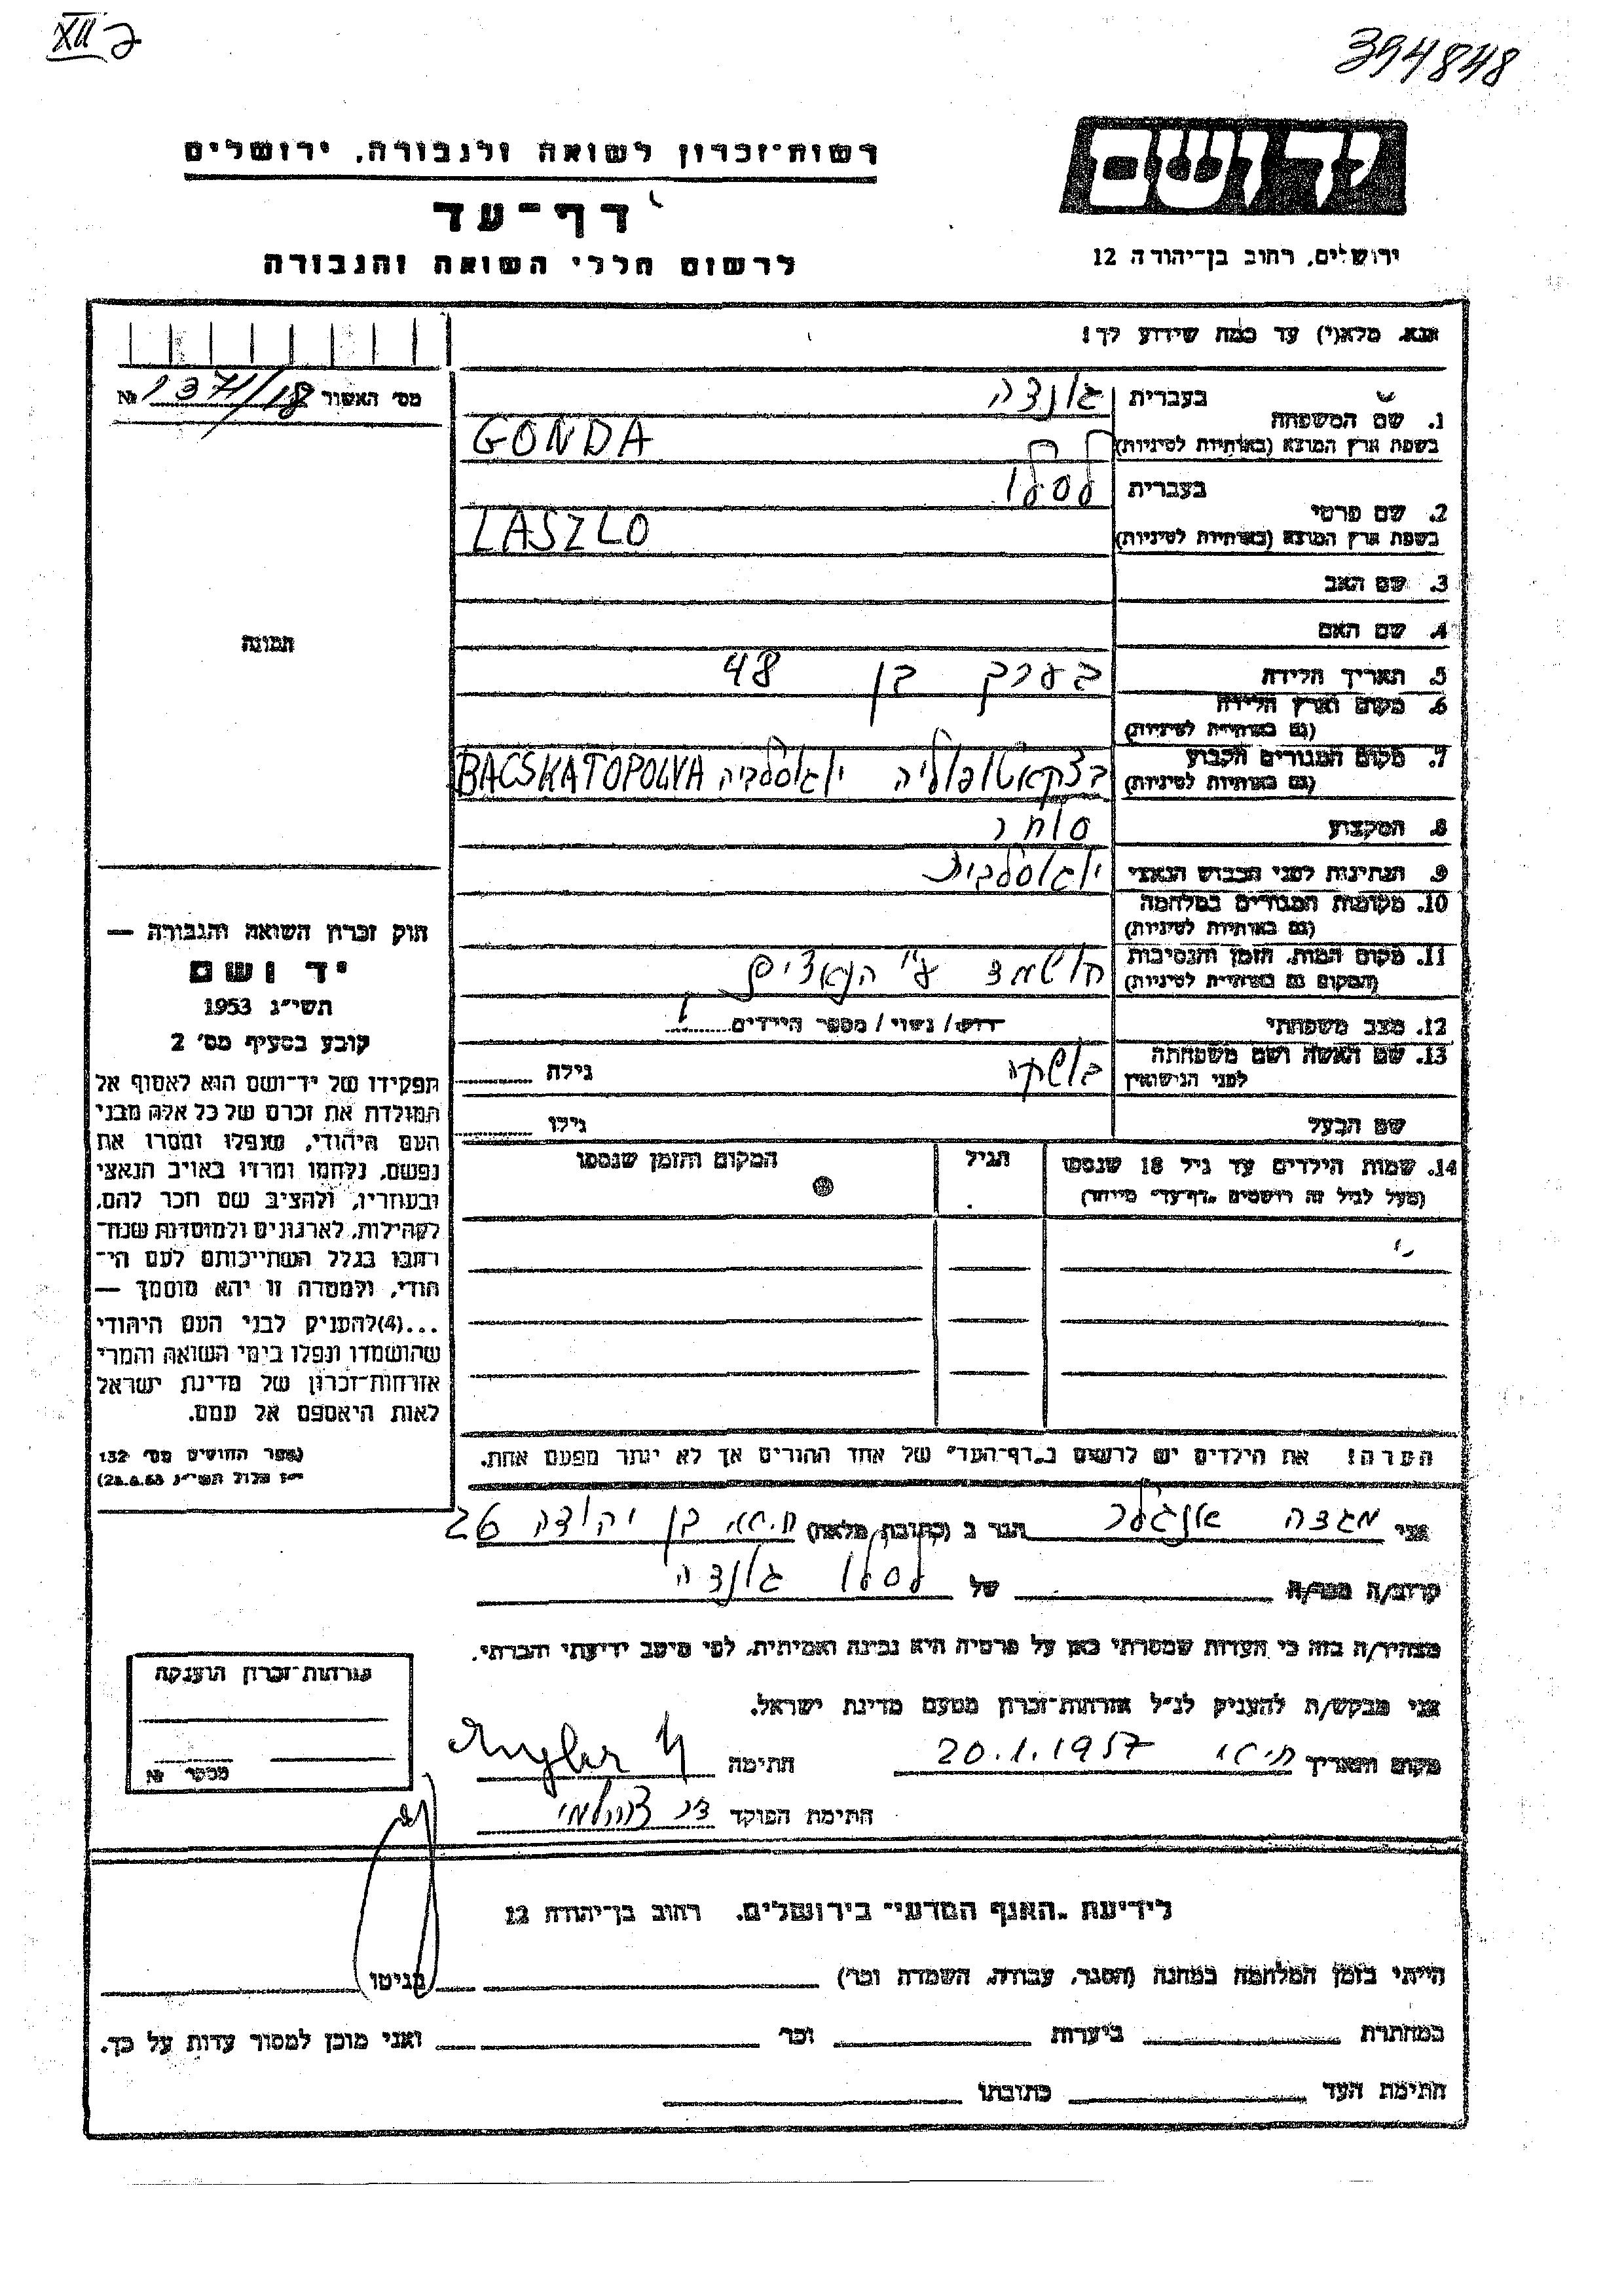 XII 2
394848
יד ושם
רשות־זכרון לשואה ולגבורה, ירושלים
דף־עד
לרשום חללי השואה והגבורה
ירושלים, רחוב בן־יהודה 12
אנא, מלא(י) עד כמה שידוע לך!
מס' האשור № 1371/18
1. שם המשפחה
בעברית גונדה
בשפת ארץ המוצא (באותיות לטיניות) GONDA
2. שם פרטי
בעברית לסלו
בשפת ארץ המוצא (באותיות לטיניות) LASZLO
3. שם האב
4. שם האם
תמונה
5. תאריך הלידה בערך בן 48
6. מקום וארץ הלידה
(גם באותיות לטיניות)
7. מקום המגורים הקבוע
(גם באותיות לטיניות)
בצקאטופוליה יוגוסלביה BACSKATOPOLYA
8. המקצוע סוחר
9. הנתינות לפני הכבוש הנאצי יוגוסלבית
10. מקומות המגורים במלחמה
(גם באותיות לטיניות)
11. מקום המות, הזמן והנסיבות
(המקום גם באותיות לטיניות)
הושמד ע"י הנאצים
12. מצב משפחתי רווק/ נשוי / מספר הילדים 1
13. שם האשה ושם משפחתה
לפני הנישואין
בושקה גילה
שם הבעל גילו
14. שמות הילדים עד גיל 18 שנספו הגיל המקום והזמן שנספו
(מעל לגיל זה רושמים "דף־עד" מיוחד)
הערה! את הילדים יש לרשום ב"דף־העד" של אחד ההורים אך לא יותר מפעם אחת.
חוק זכרון השואה והגבורה —
יד ושם
תשי"ג 1953
קובע בסעיף מס' 2
תפקידו של יד־ושם הוא לאסוף אל
המולדת את זכרם של כל אלה מבני
העם היהודי, שנפלו ומסרו את
נפשם, נלחמו ומרדו באויב הנאצי
ובעוזריו, ולהציב שם וזכר להם,
לקהילות, לארגונים ולמוסדות שנח־
רבו בגלל השתייכותם לעם הי־
הודי, ולמטרה זו יהא מוסמך —
...(4) להעניק לבני העם היהודי
שהושמדו ונפלו בימי השואה והמרי
אזרחות־זכרון של מדינת ישראל
לאות היאספם אל עמם.
(ספר החוקים מס' 132
י"ז אלול תשי"ג 28.8.53)
אני מגדה אנגלר הגר ב (כתובת מלאה) חיפה בן יהודה 26
קרוב/ה מכר/ה של לסלו גונדה
מצהיר/ה בזה כי העדות שמסרתי כאן על פרטיה היא נכונה ואמיתית, לפי מיטב ידיעתי והכרתי.
אני מבקש/ת להעניק לנ"ל אזרחות־זכרון מטעם מדינת ישראל.
מקום ותאריך חיפה 20.1.1957 חתימה Angler M
חתימת הפוקד
אזרחות־זכרון הוענקה
מספר №
לידיעת "האגף המדעי" בירושלים, רחוב בן־יהודה 12
הייתי בזמן המלחמה במחנה (הסגר, עבודה, השמדה וכו') בגיטו
במחתרת ביערות וכו' ואני מוכן למסור עדות על כך.
חתימת העד כתובתו